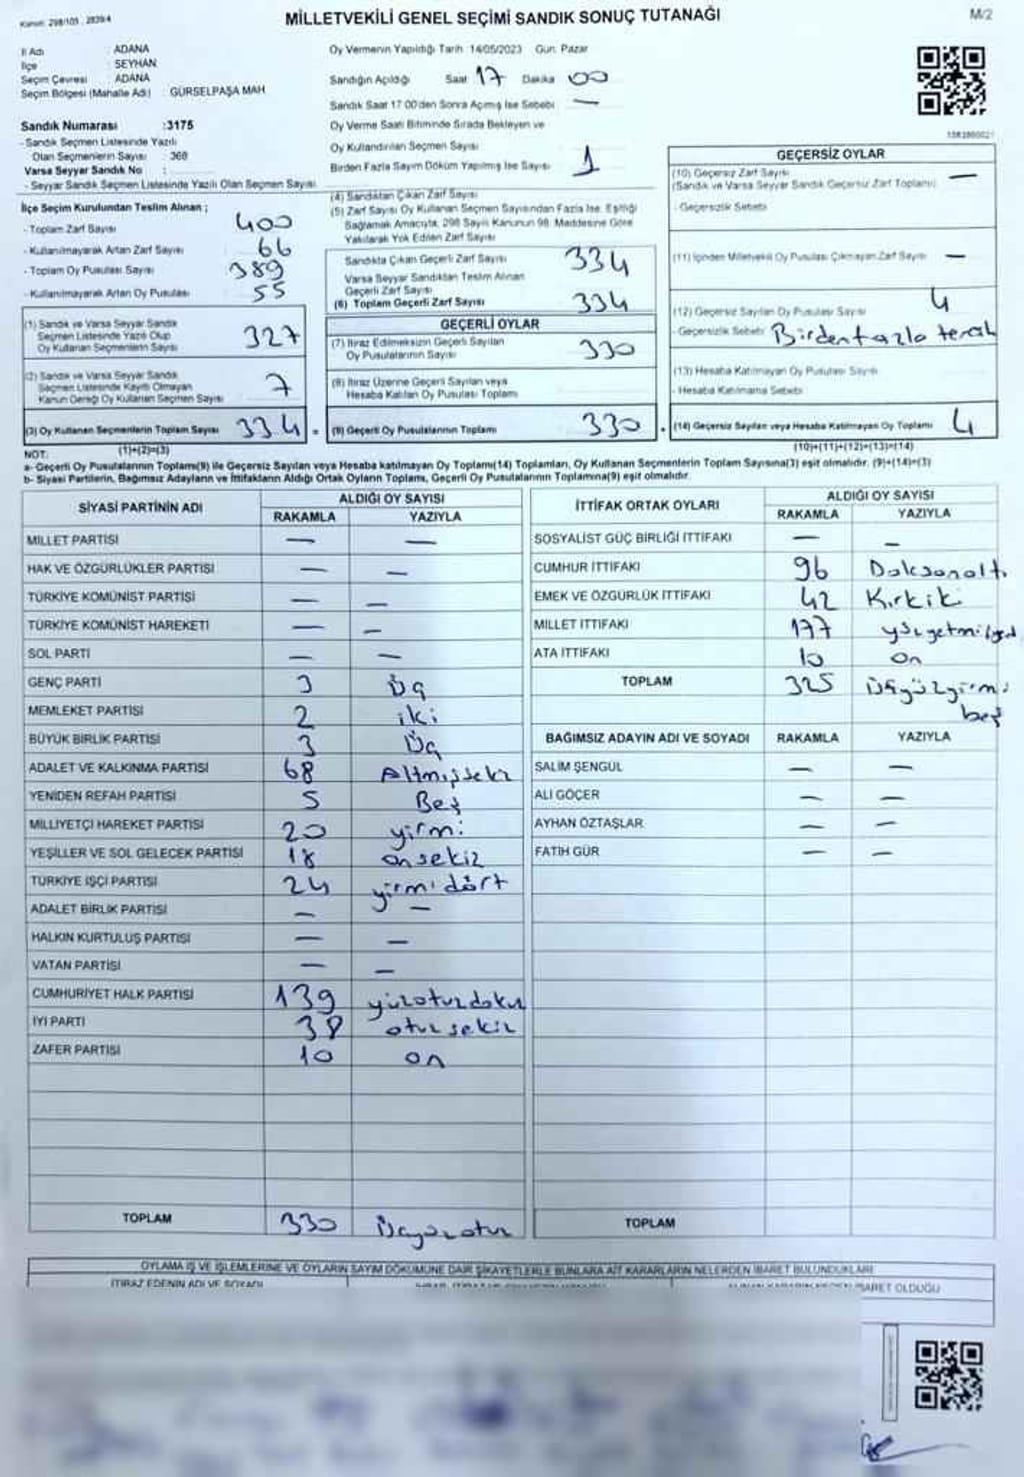 Kanun: 298/105 . 2839/4
MİLLETVEKİLİ GENEL SEÇİMİ SANDIK SONUÇ TUTANAĞI
M/2
İl Adı : ADANA
İlçe : SEYHAN
Seçim Çevresi : ADANA
Seçim Bölgesi (Mahalle Adı) : GÜRSELPAŞA MAH
Sandık Numarası :3175
- Sandık Seçmen Listesinde Yazılı
Olan Seçmenlerin Sayısı : 368
Varsa Seyyar Sandık No :
- Seyyar Sandık Seçmen Listesinde Yazılı Olan Seçmen Sayısı
Oy Vermenin Yapıldığı Tarih: 14/05/2023 Gün: Pazar
Sandığın Açıldığı Saat 17 Dakika 00
Sandık Saat 17:00'den Sonra Açılmış İse Sebebi —
Oy Verme Saati Bitiminde Sırada Bekleyen ve
Oy Kullandırılan Seçmen Sayısı
Birden Fazla Sayım Döküm Yapılmış İse Sayısı 1
İlçe Seçim Kurulundan Teslim Alınan ;
- Toplam Zarf Sayısı 400
- Kullanılmayarak Artan Zarf Sayısı 66
- Toplam Oy Pusulası Sayısı 389
- Kullanılmayarak Artan Oy Pusulası 55
(1) Sandık ve Varsa Seyyar Sandık
Seçmen Listesinde Yazılı Olup
Oy Kullanan Seçmenlerin Sayısı 327
(2) Sandık ve Varsa Seyyar Sandık
Seçmen Listesinde Kayıtlı Olmayan
Kanun Gereği Oy Kullanan Seçmen Sayısı 7
(3) Oy Kullanan Seçmenlerin Toplam Sayısı 334 =
(1)+(2)=(3)
(4) Sandıktan Çıkan Zarf Sayısı
(5) Zarf Sayısı Oy Kullanan Seçmen Sayısından Fazla İse, Eşitliği
Sağlamak Amacıyla, 298 Sayılı Kanunun 98. Maddesine Göre
Yakılarak Yok Edilen Zarf Sayısı
Sandıkta Çıkan Geçerli Zarf Sayısı 334
Varsa Seyyar Sandıktan Teslim Alınan
Geçerli Zarf Sayısı
(6) Toplam Geçerli Zarf Sayısı 334
GEÇERLİ OYLAR
(7) İtiraz Edilmeksizin Geçerli Sayılan
Oy Pusulalarının Sayısı 330
(8) İtiraz Üzerine Geçerli Sayılan veya
Hesaba Katılan Oy Pusulası Toplamı
(9) Geçerli Oy Pusulalarının Toplamı 330
GEÇERSİZ OYLAR
(10) Geçersiz Zarf Sayısı —
(Sandık ve Varsa Seyyar Sandık Geçersiz Zarf Toplamı)
- Geçersizlik Sebebi
(11) İçinden Milletvekili Oy Pusulası Çıkmayan Zarf Sayısı —
(12) Geçersiz Sayılan Oy Pusulası Sayısı 4
- Geçersizlik Sebebi Birden fazla tercih
(13) Hesaba Katılmayan Oy Pusulası Sayısı
- Hesaba Katılmama Sebebi
(14) Geçersiz Sayılan veya Hesaba Katılmayan Oy Toplamı 4
(10)+(11)+(12)+(13)=(14)
NOT:
a- Geçerli Oy Pusulalarının Toplamı(9) ile Geçersiz Sayılan veya Hesaba katılmayan Oy Toplamı(14) Toplamları, Oy Kullanan Seçmenlerin Toplam Sayısına(3) eşit olmalıdır. (9)+(14)=(3)
b- Siyasi Partilerin, Bağımsız Adayların ve İttifakların Aldığı Ortak Oyların Toplamı, Geçerli Oy Pusulalarının Toplamına(9) eşit olmalıdır.
SİYASİ PARTİNİN ADI ALDIĞI OY SAYISI
RAKAMLA YAZIYLA
MİLLET PARTİSİ — —
HAK VE ÖZGÜRLÜKLER PARTİSİ — —
TÜRKİYE KOMÜNİST PARTİSİ — —
TÜRKİYE KOMÜNİST HAREKETİ — —
SOL PARTİ — —
GENÇ PARTİ 3 Üç
MEMLEKET PARTİSİ 2 iki
BÜYÜK BİRLİK PARTİSİ 3 Üç
ADALET VE KALKINMA PARTİSİ 68 Altmışseki
YENİDEN REFAH PARTİSİ 5 Beş
MİLLİYETÇİ HAREKET PARTİSİ 20 yirmi
YEŞİLLER VE SOL GELECEK PARTİSİ 18 onsekiz
TÜRKİYE İŞÇİ PARTİSİ 24 yirmidört
ADALET BİRLİK PARTİSİ — —
HALKIN KURTULUŞ PARTİSİ — —
VATAN PARTİSİ — —
CUMHURİYET HALK PARTİSİ 139 yüzotuzdoku
İYİ PARTİ 38 otuzsekiz
ZAFER PARTİSİ 10 on
TOPLAM 330 Üçyüzotuz
İTTİFAK ORTAK OYLARI ALDIĞI OY SAYISI
RAKAMLA YAZIYLA
SOSYALİST GÜÇ BİRLİĞİ İTTİFAKI — —
CUMHUR İTTİFAKI 96 Doksanaltı
EMEK VE ÖZGÜRLÜK İTTİFAKI 42 Kırkiki
MİLLET İTTİFAKI 177 yüzyetmişyedi
ATA İTTİFAKI 10 on
TOPLAM 325 Üçyüzyirmi
beş
BAĞIMSIZ ADAYIN ADI VE SOYADI RAKAMLA YAZIYLA
SALİM ŞENGÜL — —
ALİ GÖÇER — —
AYHAN ÖZTAŞLAR — —
FATİH GÜR — —
TOPLAM
OYLAMA İŞ VE İŞLEMLERİNE VE OYLARIN SAYIM DÖKÜMÜNE DAİR ŞİKAYETLERLE BUNLARA AİT KARARLARIN NELERDEN İBARET BULUNDUKLARI
İTİRAZ EDENİN ADI VE SOYADI
İBARET OLDUĞU